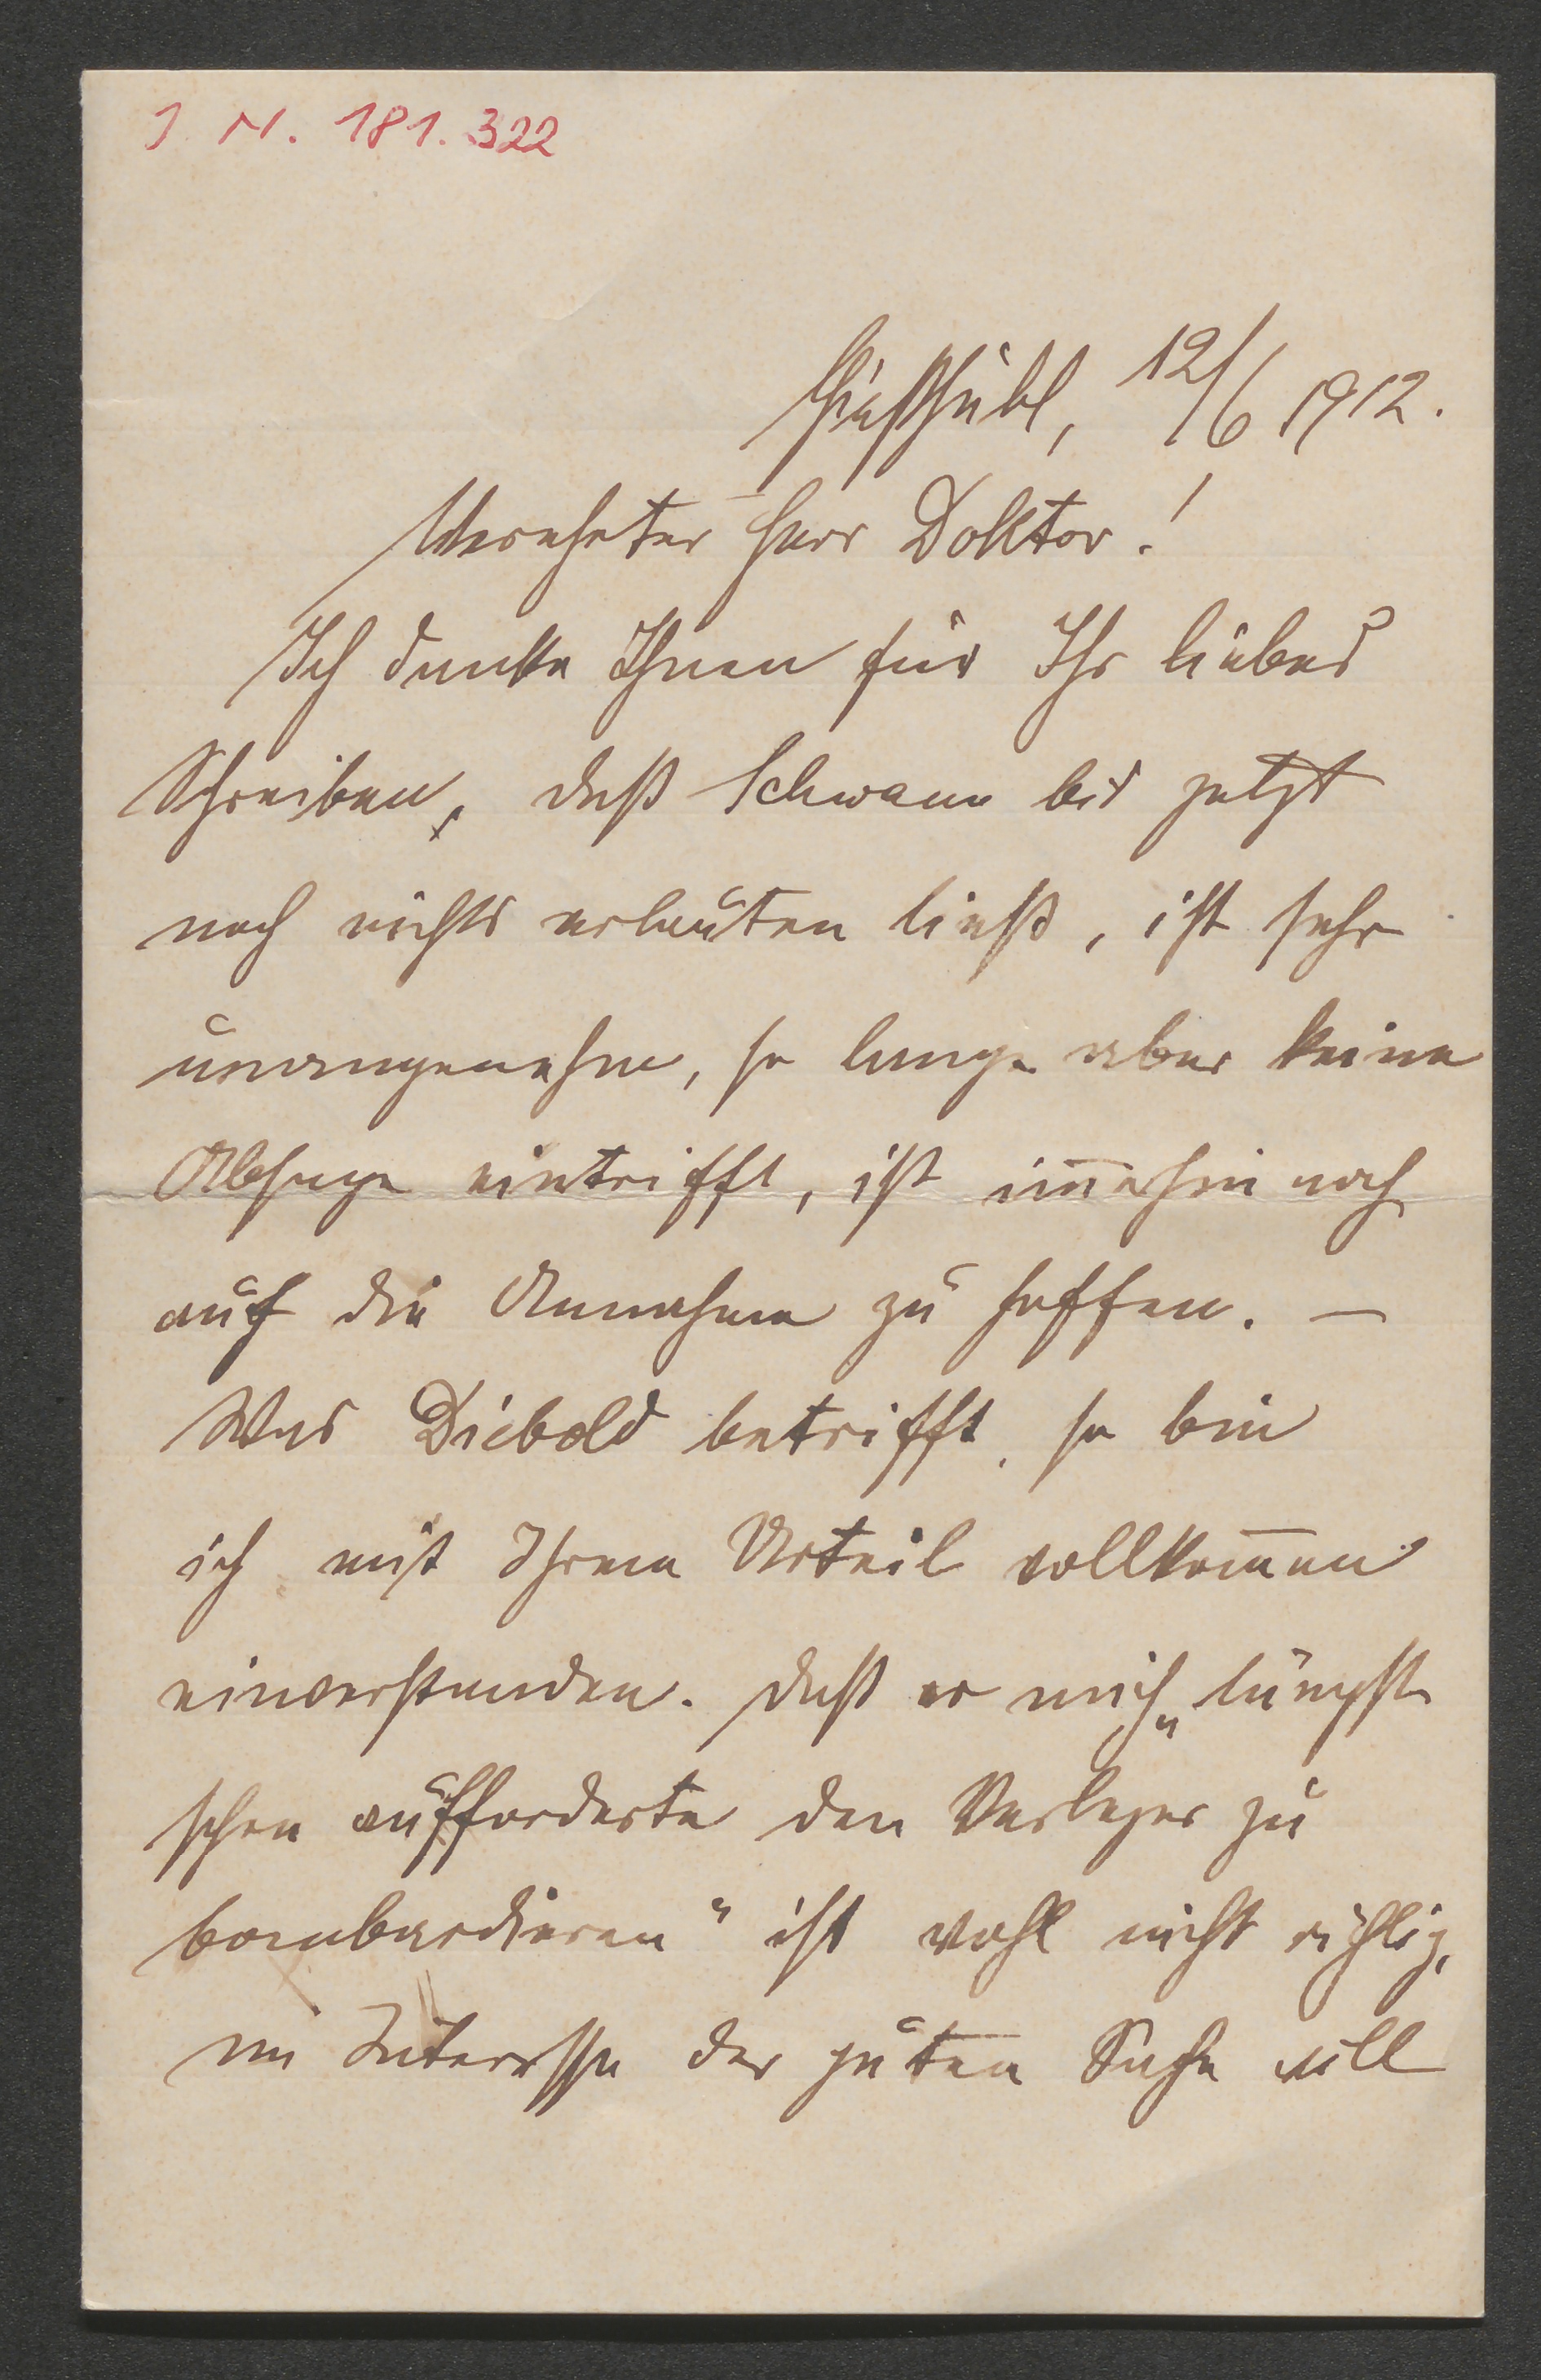 J. N. 181.322
Gießhübl, 12/6 1912.
Verehrter Herr Doktor!
Ich danke Ihnen für Ihr liebes
Schreiben, daß Schwann bis jetzt
noch nichts verlauten ließ, ist sehr
unangenehm, so lange aber keine
Absage eintrifft, ist im̅erhin noch
auf die Annahme zu hoffen. —
Was Diebold betrifft, so bin
ich mit Ihrem Urteil vollkom̅en
einverstanden. Daß er mich „längst
schon aufforderte den Verleger zu
bombardieren" ist wohl nicht richtig,
im Interesse der guten Sache will